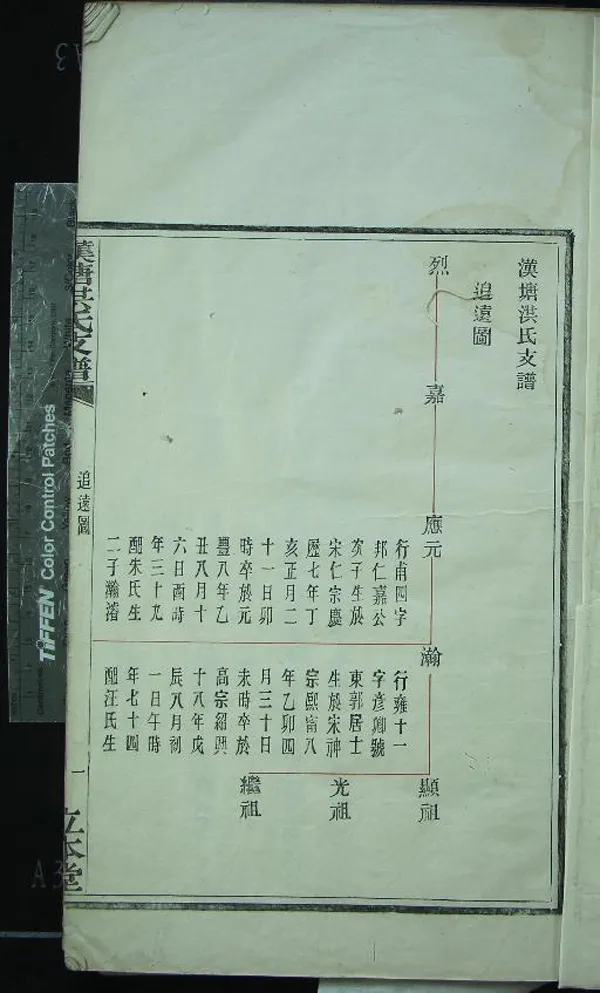 漢塘洪氏支譜
追遠圖
烈
嘉
應元
行甫四字
邦仁嘉公
次子生於
宋仁宗慶
歷七年丁
亥正月二
十一日卯
時卒於元
豐八年乙
丑八月十
六日酉時
年三十九
配朱氏生
二子瀚濬
瀚
行雍十一
字彥卿號
東郭居士
生於宋神
宗熙甯八
年乙卯四
月三十日
未時卒於
高宗紹興
十八年戊
辰八月初
一日午時
年七十四
配汪氏生
顯祖
光祖
繼祖
漢塘洪氏支譜
追遠圖
一
立本堂
TIFFEN Color Control Patches
A3
A3